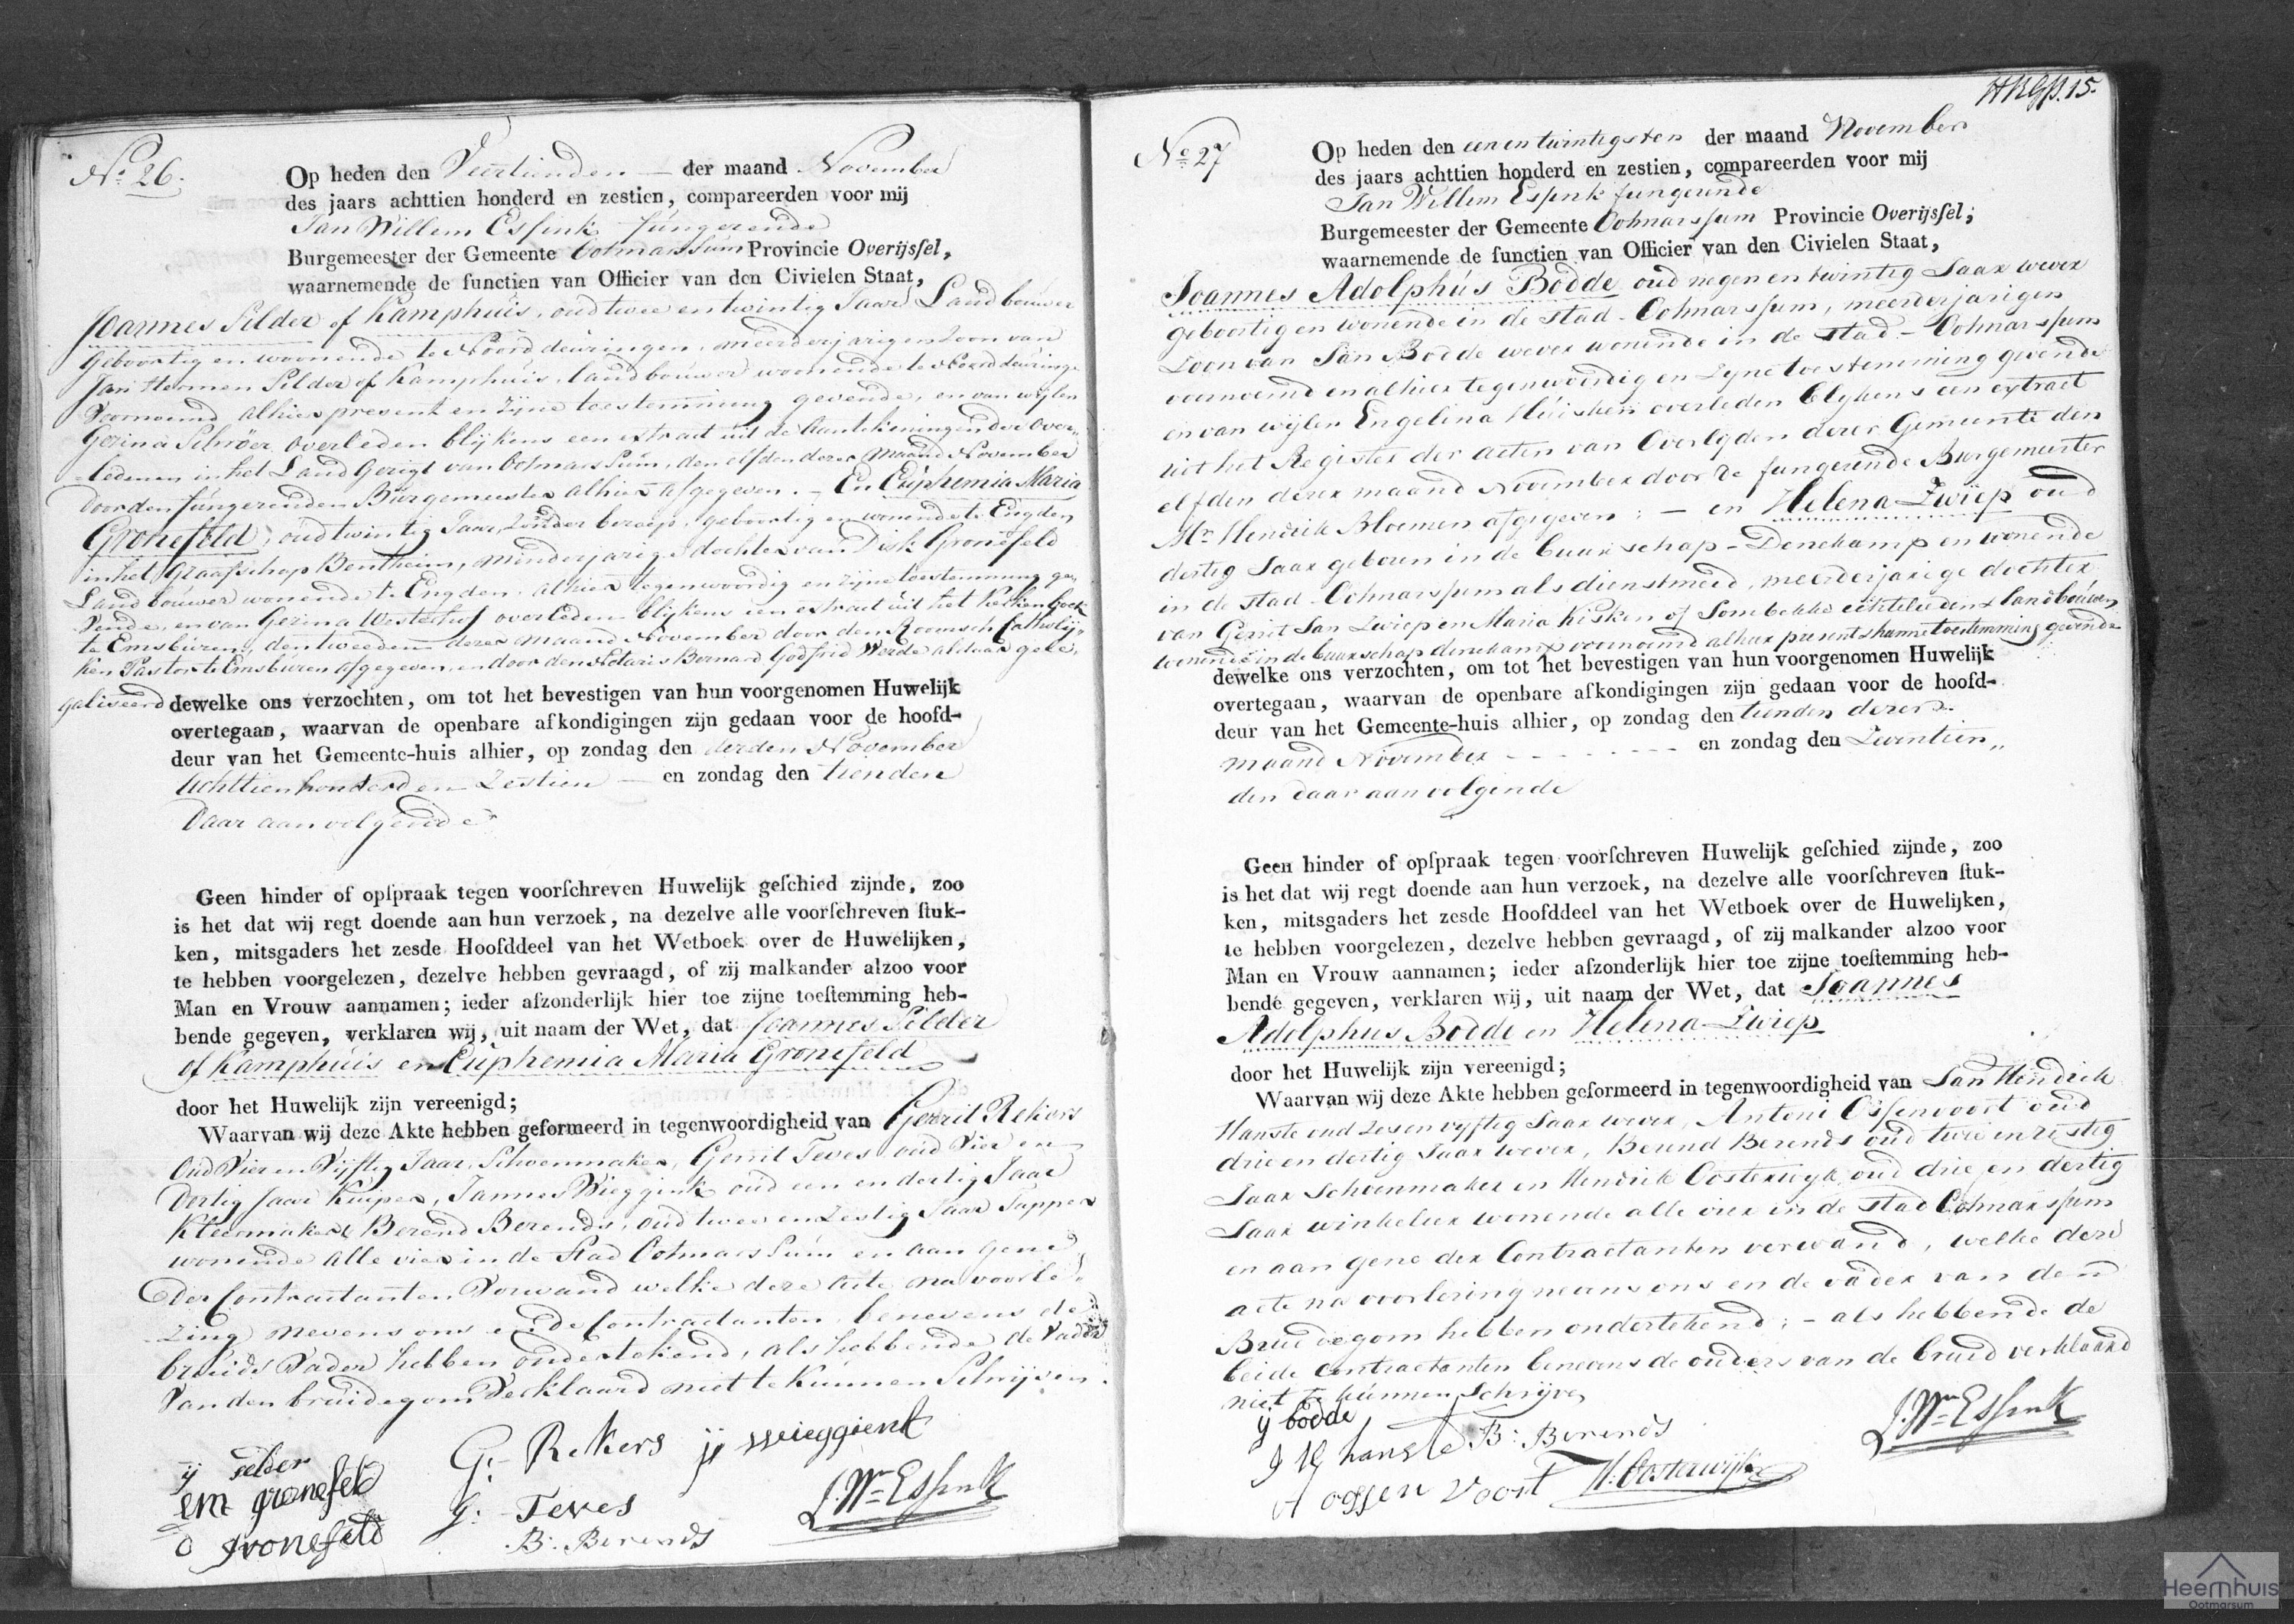 No. 26.
Op heden den Veertienden — der maand November
des jaars achttien honderd en zestien, compareerden voor mij
Jan Willem Essink fungerende
Burgemeester der Gemeente Ootmarssum Provincie Overijsſel,
waarnemende de functien van Officier van den Civielen Staat,
Joannes Silder of Kamphuis, oud twee en twintig Jaar Landbouwer
geboortig en woonende te Noord deuringen, meerderjarigen Zoon van
Jan Hermen Silder of Kamphuis, landbouwer woonende te Noorddeuringe
Voornoemd alhier present en zijne toestemming gevende, en van wylen
Gezina Schröer overleden blijkens een extract uit de Aantekeningen der Over„
ledenen in het Land Gerigt van Ootmarssum, den elfden dezer maand November
door den fungerenden Burgemeester alhier afgegeven. — En Euphemia Maria
Gronefeld, oud twintig Jaar, zonder beroep, geboortig en wonende te Engden
in het Graafschap Bentheim, minderjarige dochter van Dirk Gronefeld
Landbouwer wonende te Engden, alhier tegenwoordig en zijne toestemming ge„
vende, en van Gezina Westerhof overleden blijkens een extract uit het Kerkenboek
te Emsburen, den tweeden dezer maand November door den Roomsch Catholij„
ken Pastor te Emsburen afgegeven, en door den Notaris Bernard Godfrid Werde aldaar gele„
galiseerd dewelke ons verzochten, om tot het bevestigen van hun voorgenomen Huwelijk
overtegaan, waarvan de openbare afkondigingen zijn gedaan voor de hoofd-
deur van het Gemeente-huis alhier, op zondag den derden November
Achttien honderd en Zestien — en zondag den tienden
daar aan volgende
Geen hinder of opſpraak tegen voorſchreven Huwelijk geſchied zijnde, zoo
is het dat wij regt doende aan hun verzoek, na dezelve alle voorſchreven ſtuk-
ken, mitsgaders het zesde Hoofddeel van het Wetboek over de Huwelijken,
te hebben voorgelezen, dezelve hebben gevraagd, of zij malkander alzoo voor
Man en Vrouw aannamen; ieder afzonderlijk hier toe zijne toeſtemming heb-
bende gegeven, verklaren wij, uit naam der Wet, dat Joannes Silder
of Kamphuis en Euphemia Maria Gronefeld
door het Huwelijk zijn vereenigd;
Waarvan wij deze Akte hebben geformeerd in tegenwoordigheid van Gerrit Rekers
Oud Vier en Vijftig Jaar, Schoenmaker, Gerrit Teves oud Vier en
Dertig Jaar Kuiper, Jannes Wieggink oud een en dertig Jaar
Kleermaker & Berend Berends, oud twee en Zestig Jaar Tapper
wonende alle vier in de Stad Ootmarssum en aan gene
der Contractanten Verwand welke deze acte na voorle„
zing nevens ons en de Contractanten, benevens de
bruids Vader hebben ondertekend, als hebbende de Vader
Van den bruidegom Verklaard niet te Kunnen Schrijven.
ij selder
em gronefeld
d gronefeld
G: Rekers
G: Teves
B: Berends
ij wieggient
J. Wm Essink
HRGP. 15.
No. 27
Op heden den een en twintigsten der maand November
des jaars achttien honderd en zestien, compareerden voor mij
Jan Willem Essink fungerende
Burgemeester der Gemeente Ootmarssum Provincie Overijsſel;
waarnemende de functien van Officier van den Civielen Staat,
Joannes Adolphus Bodde oud negen en twintig Jaar wever
geboortig en wonende in de stad Ootmarssum, meerderjarigen
Zoon van Jan Bodde wever wonende in de stad — Ootmarssum
voornoemd en alhier tegenwoordig en zyne toestemming gevende
en van wijlen Engelina Huisken overleden blykens een extract
uit het Register der acten van Overlyden dezer Gemeente den
elfden dezer maand November door de fungerende Burgemeester
Mr. Hendrik Bloemen afgegeven: — en Helena Zwiep oud
dertig Jaar geboren in de buurschap — Denekamp en wonende
in de stad Ootmarssum als dienstmeid, meerderjarige dochter
van Gerrit Jan Zwiep en Maria Kisken of Sombekke echtelieden landbouwers
wonende in de buurschap denekamp voornoemd alhier present hunne toestemming gevende
dewelke ons verzochten, om tot het bevestigen van hun voorgenomen Huwelijk
overtegaan, waarvan de openbare afkondigingen zijn gedaan voor de hoofd-
deur van het Gemeente-huis alhier, op zondag den tienden dezer
maand November - - - - - - en zondag den Zeventien„
den daar aan volgende
Geen hinder of opſpraak tegen voorſchreven Huwelijk geſchied zijnde, zoo
is het dat wij regt doende aan hun verzoek, na dezelve alle voorſchreven ſtuk-
ken, mitsgaders het zesde Hoofddeel van het Wetboek over de Huwelijken,
te hebben voorgelezen, dezelve hebben gevraagd, of zij malkander alzoo voor
Man en Vrouw aannamen; ieder afzonderlijk hier toe zijne toeſtemming heb-
bende gegeven, verklaren wij, uit naam der Wet, dat Joannes
Adolphus Bodde en Helena Zwiep
door het Huwelijk zijn vereenigd;
Waarvan wij deze Akte hebben geformeerd in tegenwoordigheid van Jan Hendrik
Hanste oud zes en vyftig Jaar wever, Antoni Ossenvoort oud
drie en dertig Jaar wever, Berend Berends oud twee en zestig
Jaar Schoenmaker en Hendrik Oosterwyk oud drie en dertig
Jaar winkelier wonende alle vier in de stad Ootmarssum
en aan gene der Contractanten verwand, welke deze
acte na voorlezing nevens ons en de vader van den
Bruidegom hebben ondertekend; — als hebbende de
beide contractanten benevens de ouders van de bruid verklaard
niet te kunnen Schrijven
ij bodde
J H hanste
A ossen Voort
B: Berends
H. Oosterwijk
J. Wm Essink
Heemhuis
Ootmarsum